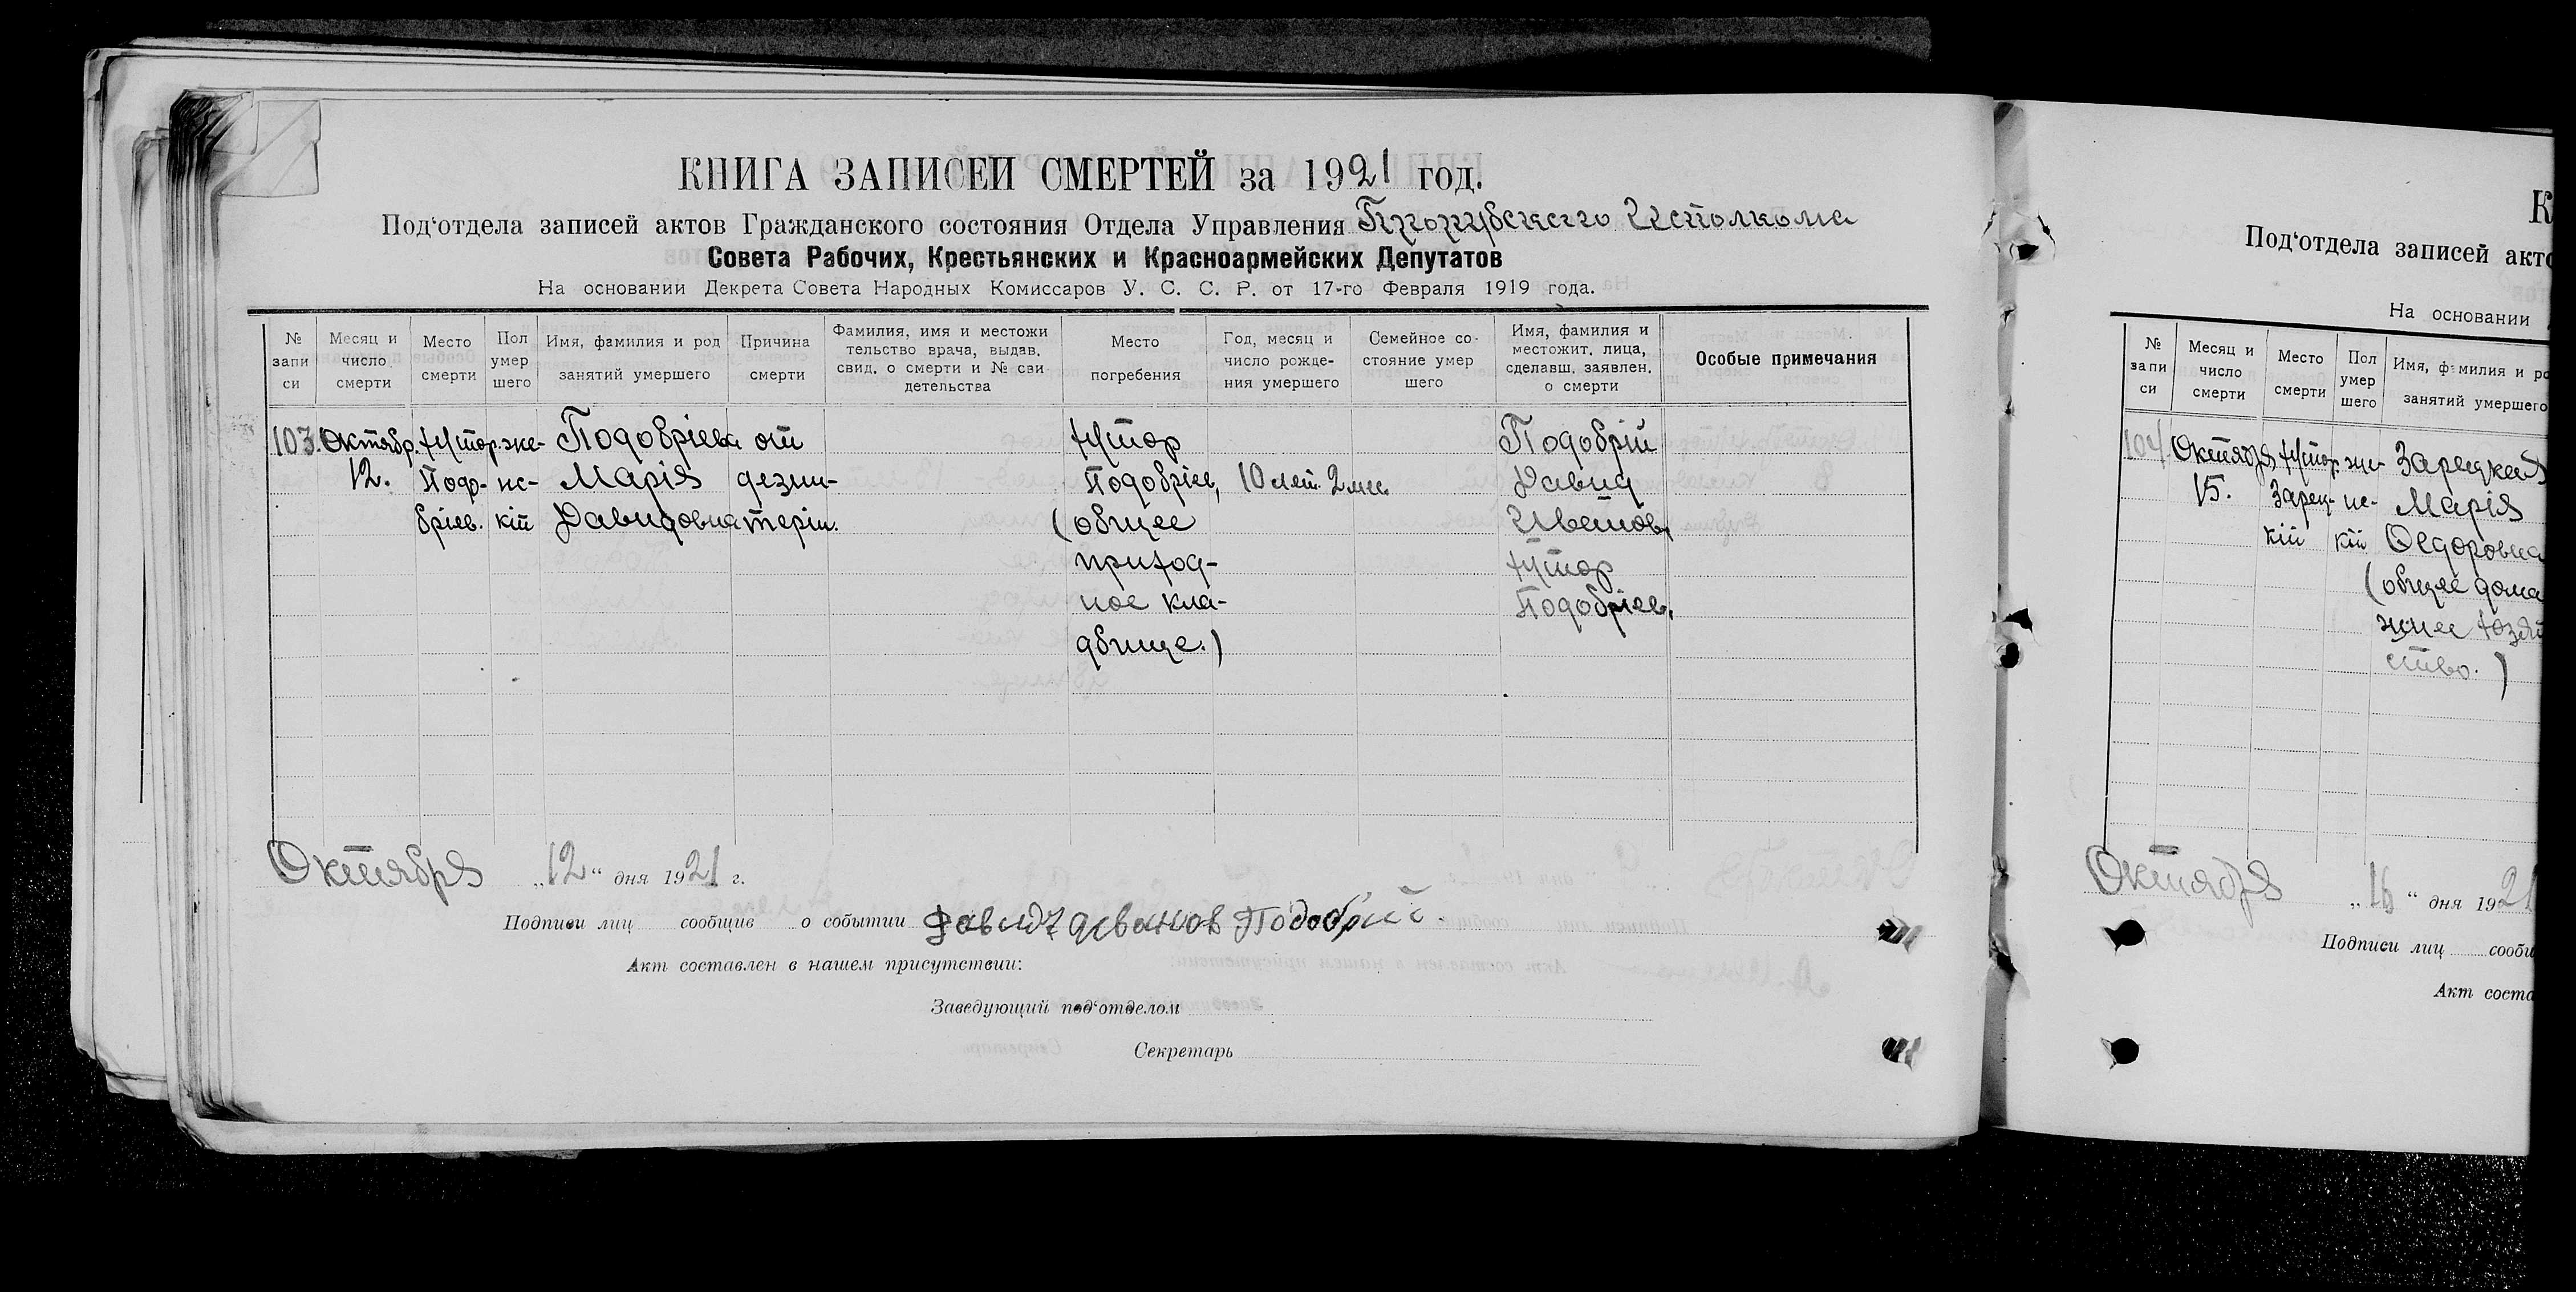 КНИГА ЗАПИСЕЙ СМЕРТЕЙ за 1921 год.
Под‘отдела записей актов Гражданского состояния Отдела Управления Исполкома
Совета Рабочих, Крестьянских и Красноармейских Депутатов
На основании Декрета Совета Народных Комиссаров У. С. С. Р. от 17-го Февраля 1919 года.
№ запи си
Месяц и число смерти
Место смерти
Пол умер шего
Имя, фамилия и род занятий умершего
Причина смерти
Фамилия, имя и местожи тельство врача, выдав. свид. о смерти и № сви детельства
Место погребения
Год, месяц и число рожде- ния умершего
Семейное со- стояние умер шего
Имя, фамилия и местожит. лица, сделавш. заявлен. о смерти
Особые примечания
103. Октябр. хутор. же- Подобріева от хутор Подобрій
12. Подо- нс- Марія дезин- Подобріев, 10 лет. 2 мес. Давид
бріев. кій Давидовна теріи. (общее Иванов,
приход- хутор
ное кла- Подобріев.
дбище.)
Октября „12“ дня 1921 г.
Подписи лиц сообщив о событии Давидъ Иванов Подобрий.
Акт составлен в нашем присутствии:
Заведующий под‘отделом
Секретарь
К
Под‘отдела записей акто
На основании
№ запи си
Месяц и число смерти
Место смерти
Пол умер шего
Имя, фамилия и ро
занятий умершего
104. Октября хутор. же- Зарецкая
15. Зарец- нс- Марія
кій кій Федоровна
(общее дома
шнее хозяй
ство.)
Октября „16“ дня 1921
Подписи лиц сооби
Акт соста